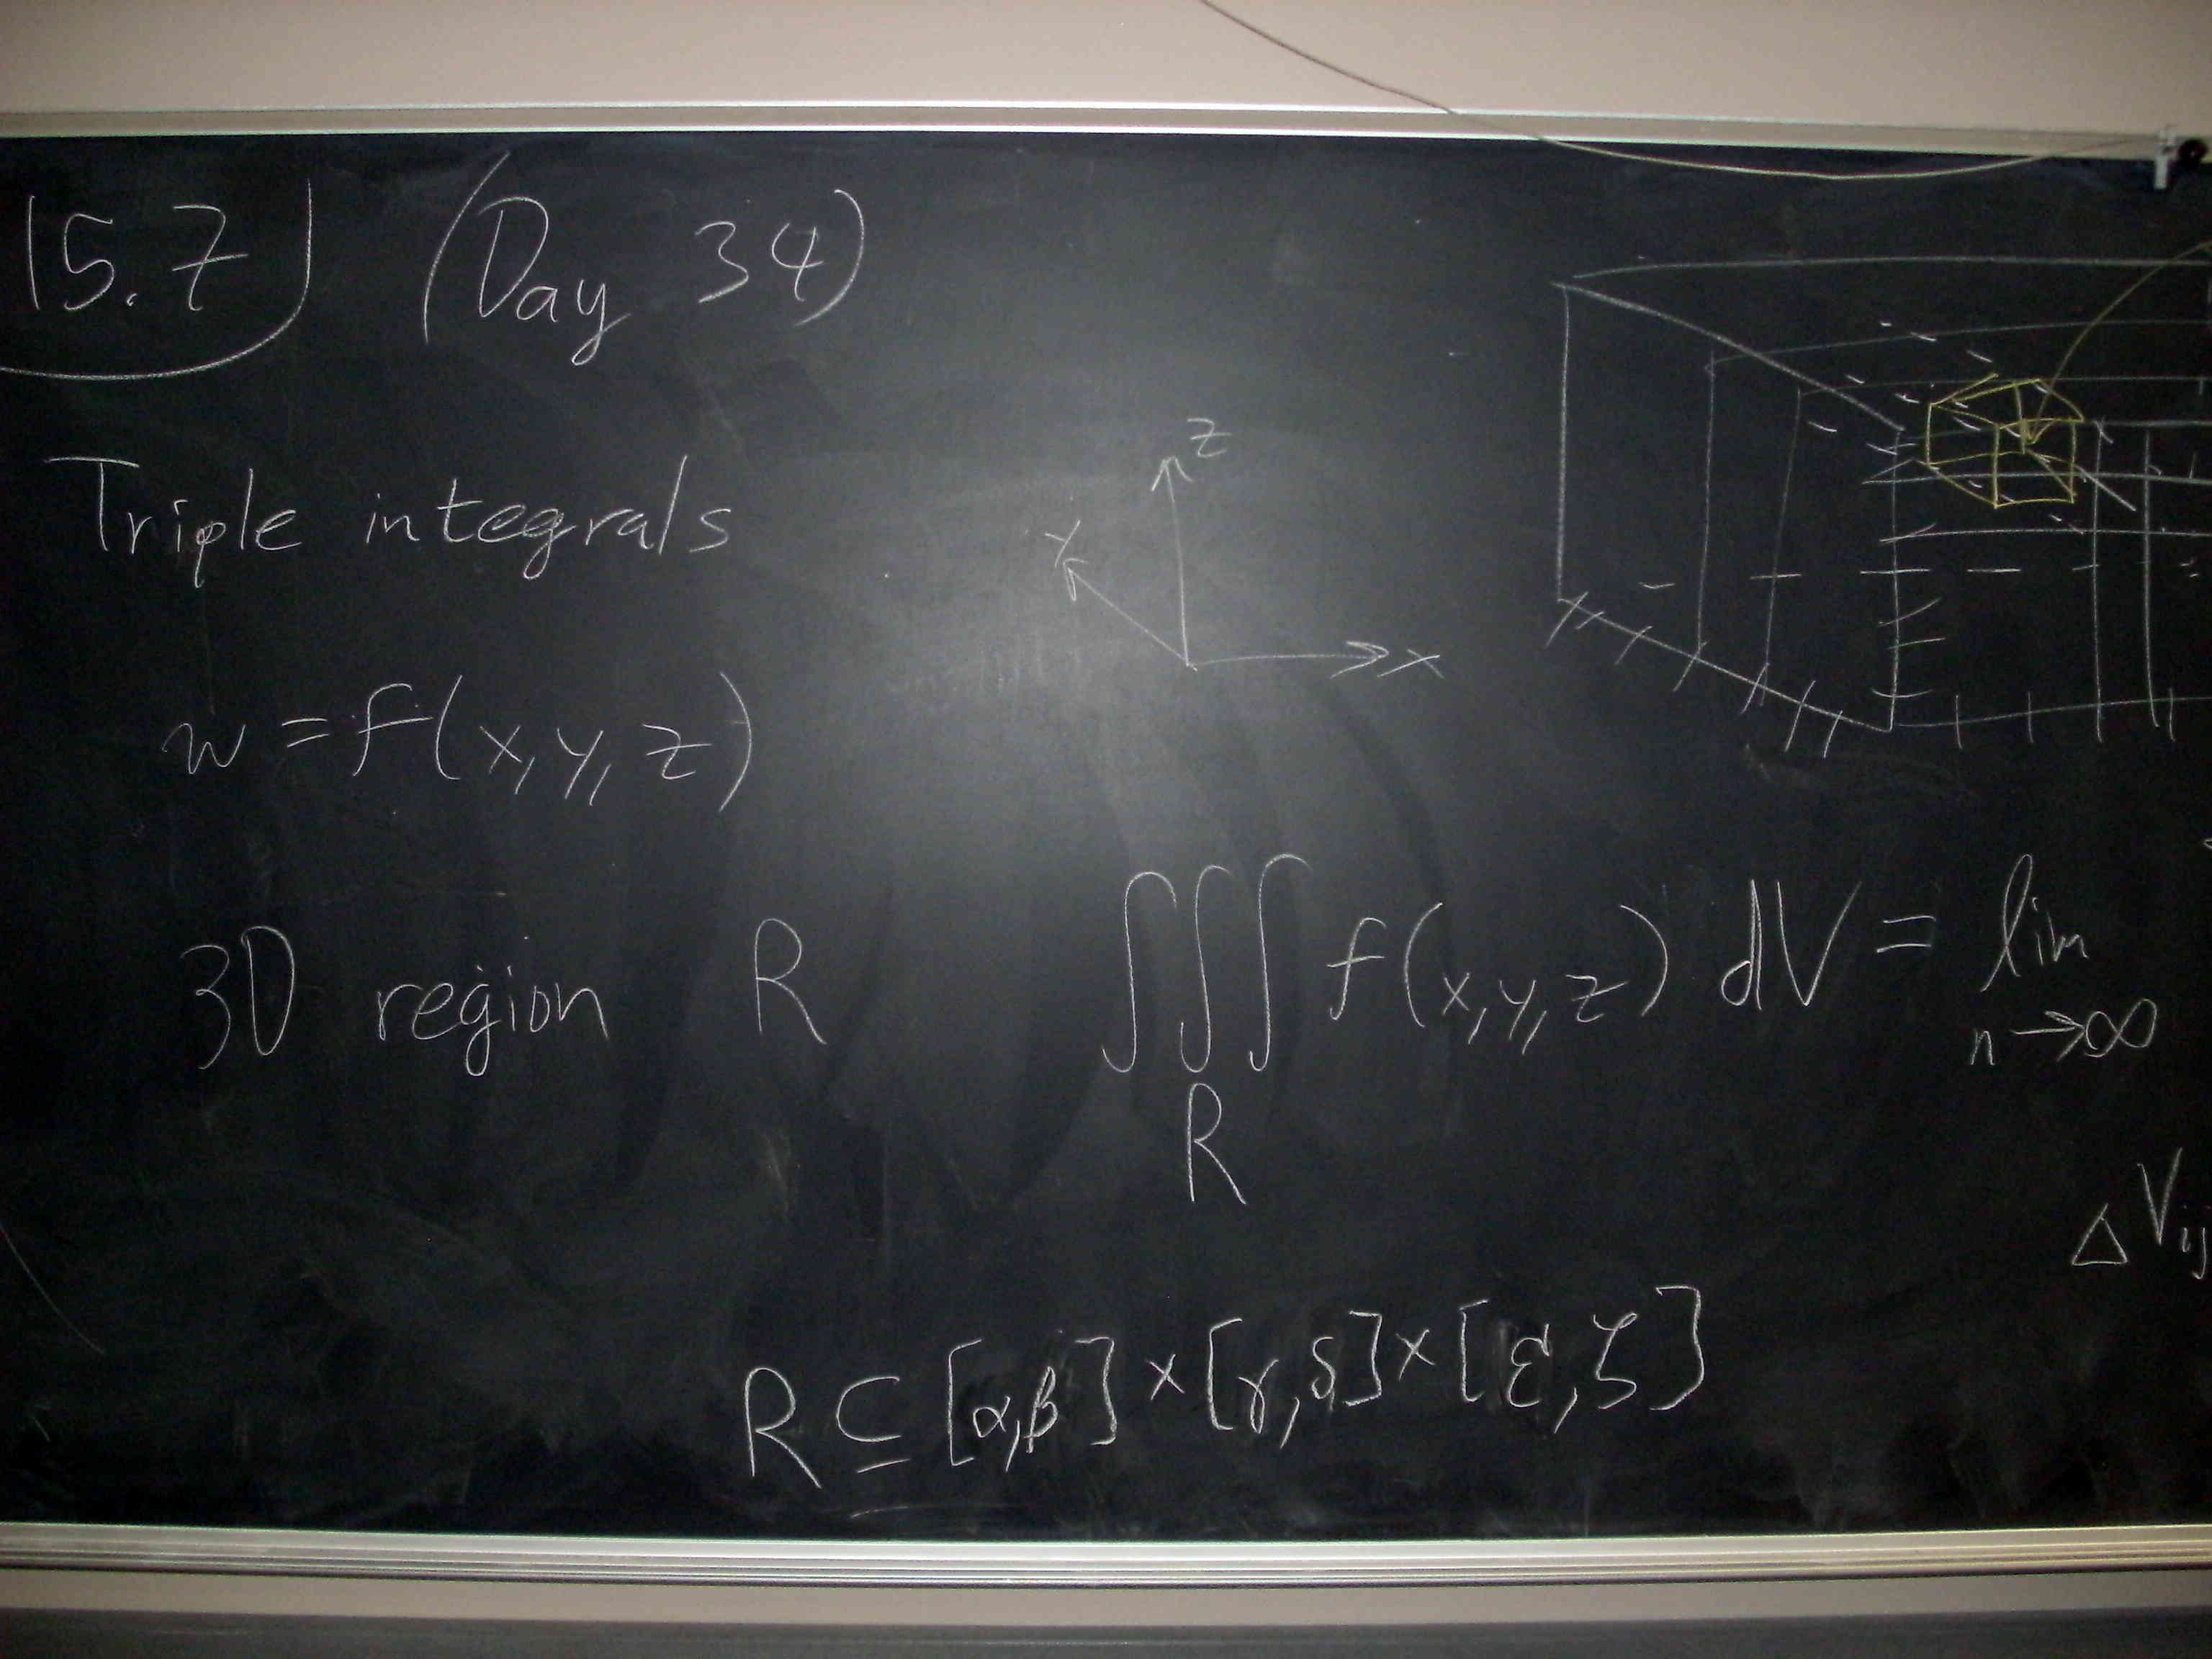 15.7 (Day 34)
Triple integrals
z
y
x
w = f(x,y,z)
3D region R
∫∫∫ f(x,y,z) dV = lim
R
n→∞
ΔV ij
R ⊆ [α,β] × [γ,δ] × [ε,ζ]